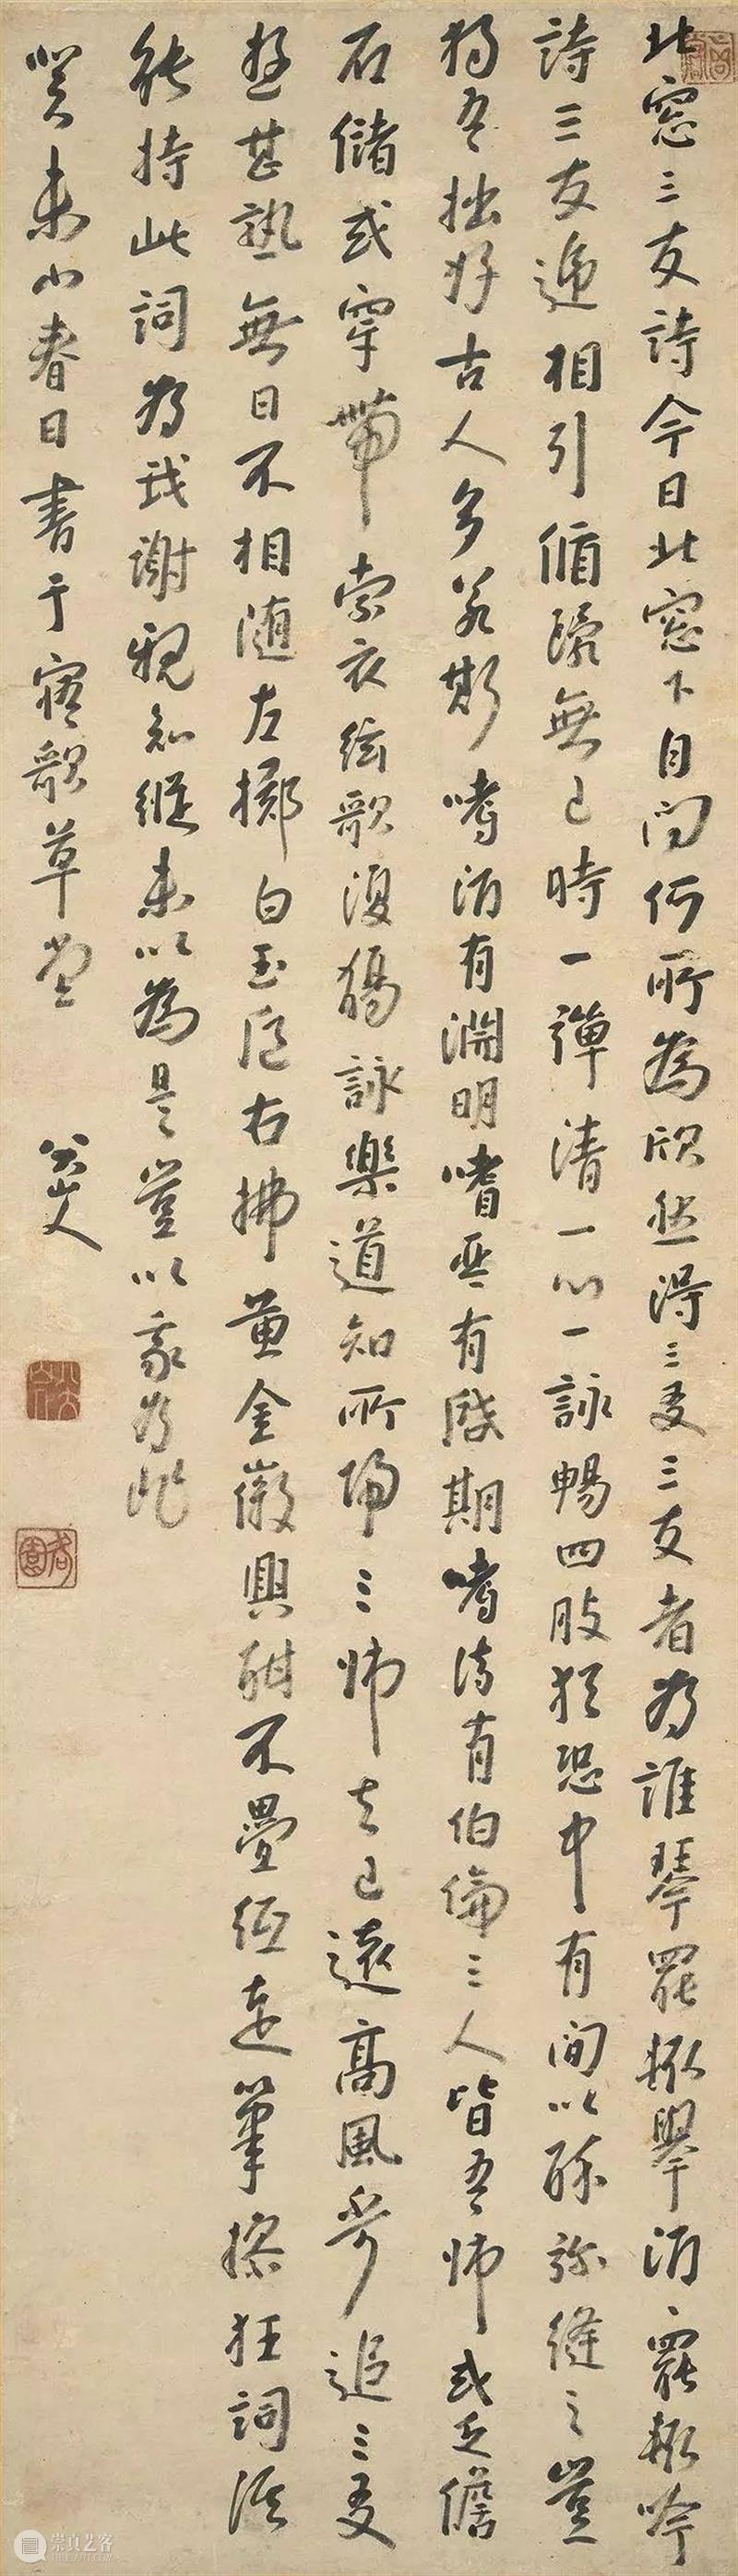 北窓三友詩今日北窓下自問何所為欣然得三友三友者為誰琴罷輒舉酒〻罷輒吟
詩三友遞相引循環無已時一彈清一心一詠暢四肢猶恐中有間以酔弥縫之豈
獨吾拙好古人多若斯嗜酒有淵明嗜琴有啟期嗜詩有伯倫三人皆吾師或乏儋
石儲或穿帶索衣絃歌復觴詠樂道知所歸三師去已遠高風不可追三友
遊甚熟無日不相随左擲白玉卮右拂黄金徽興酣不疊紙走筆操狂詞誰
能持此詞為我謝親知縱未以為是豈以我為非
癸未小春日書于寤歌草堂
八大山人
八大山人
崇真艺客